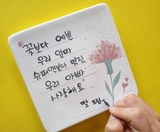 "꽃보다 예쁜
우리 엄마
슈퍼맨보다 멋진
우리 아빠
사랑해요"
딸